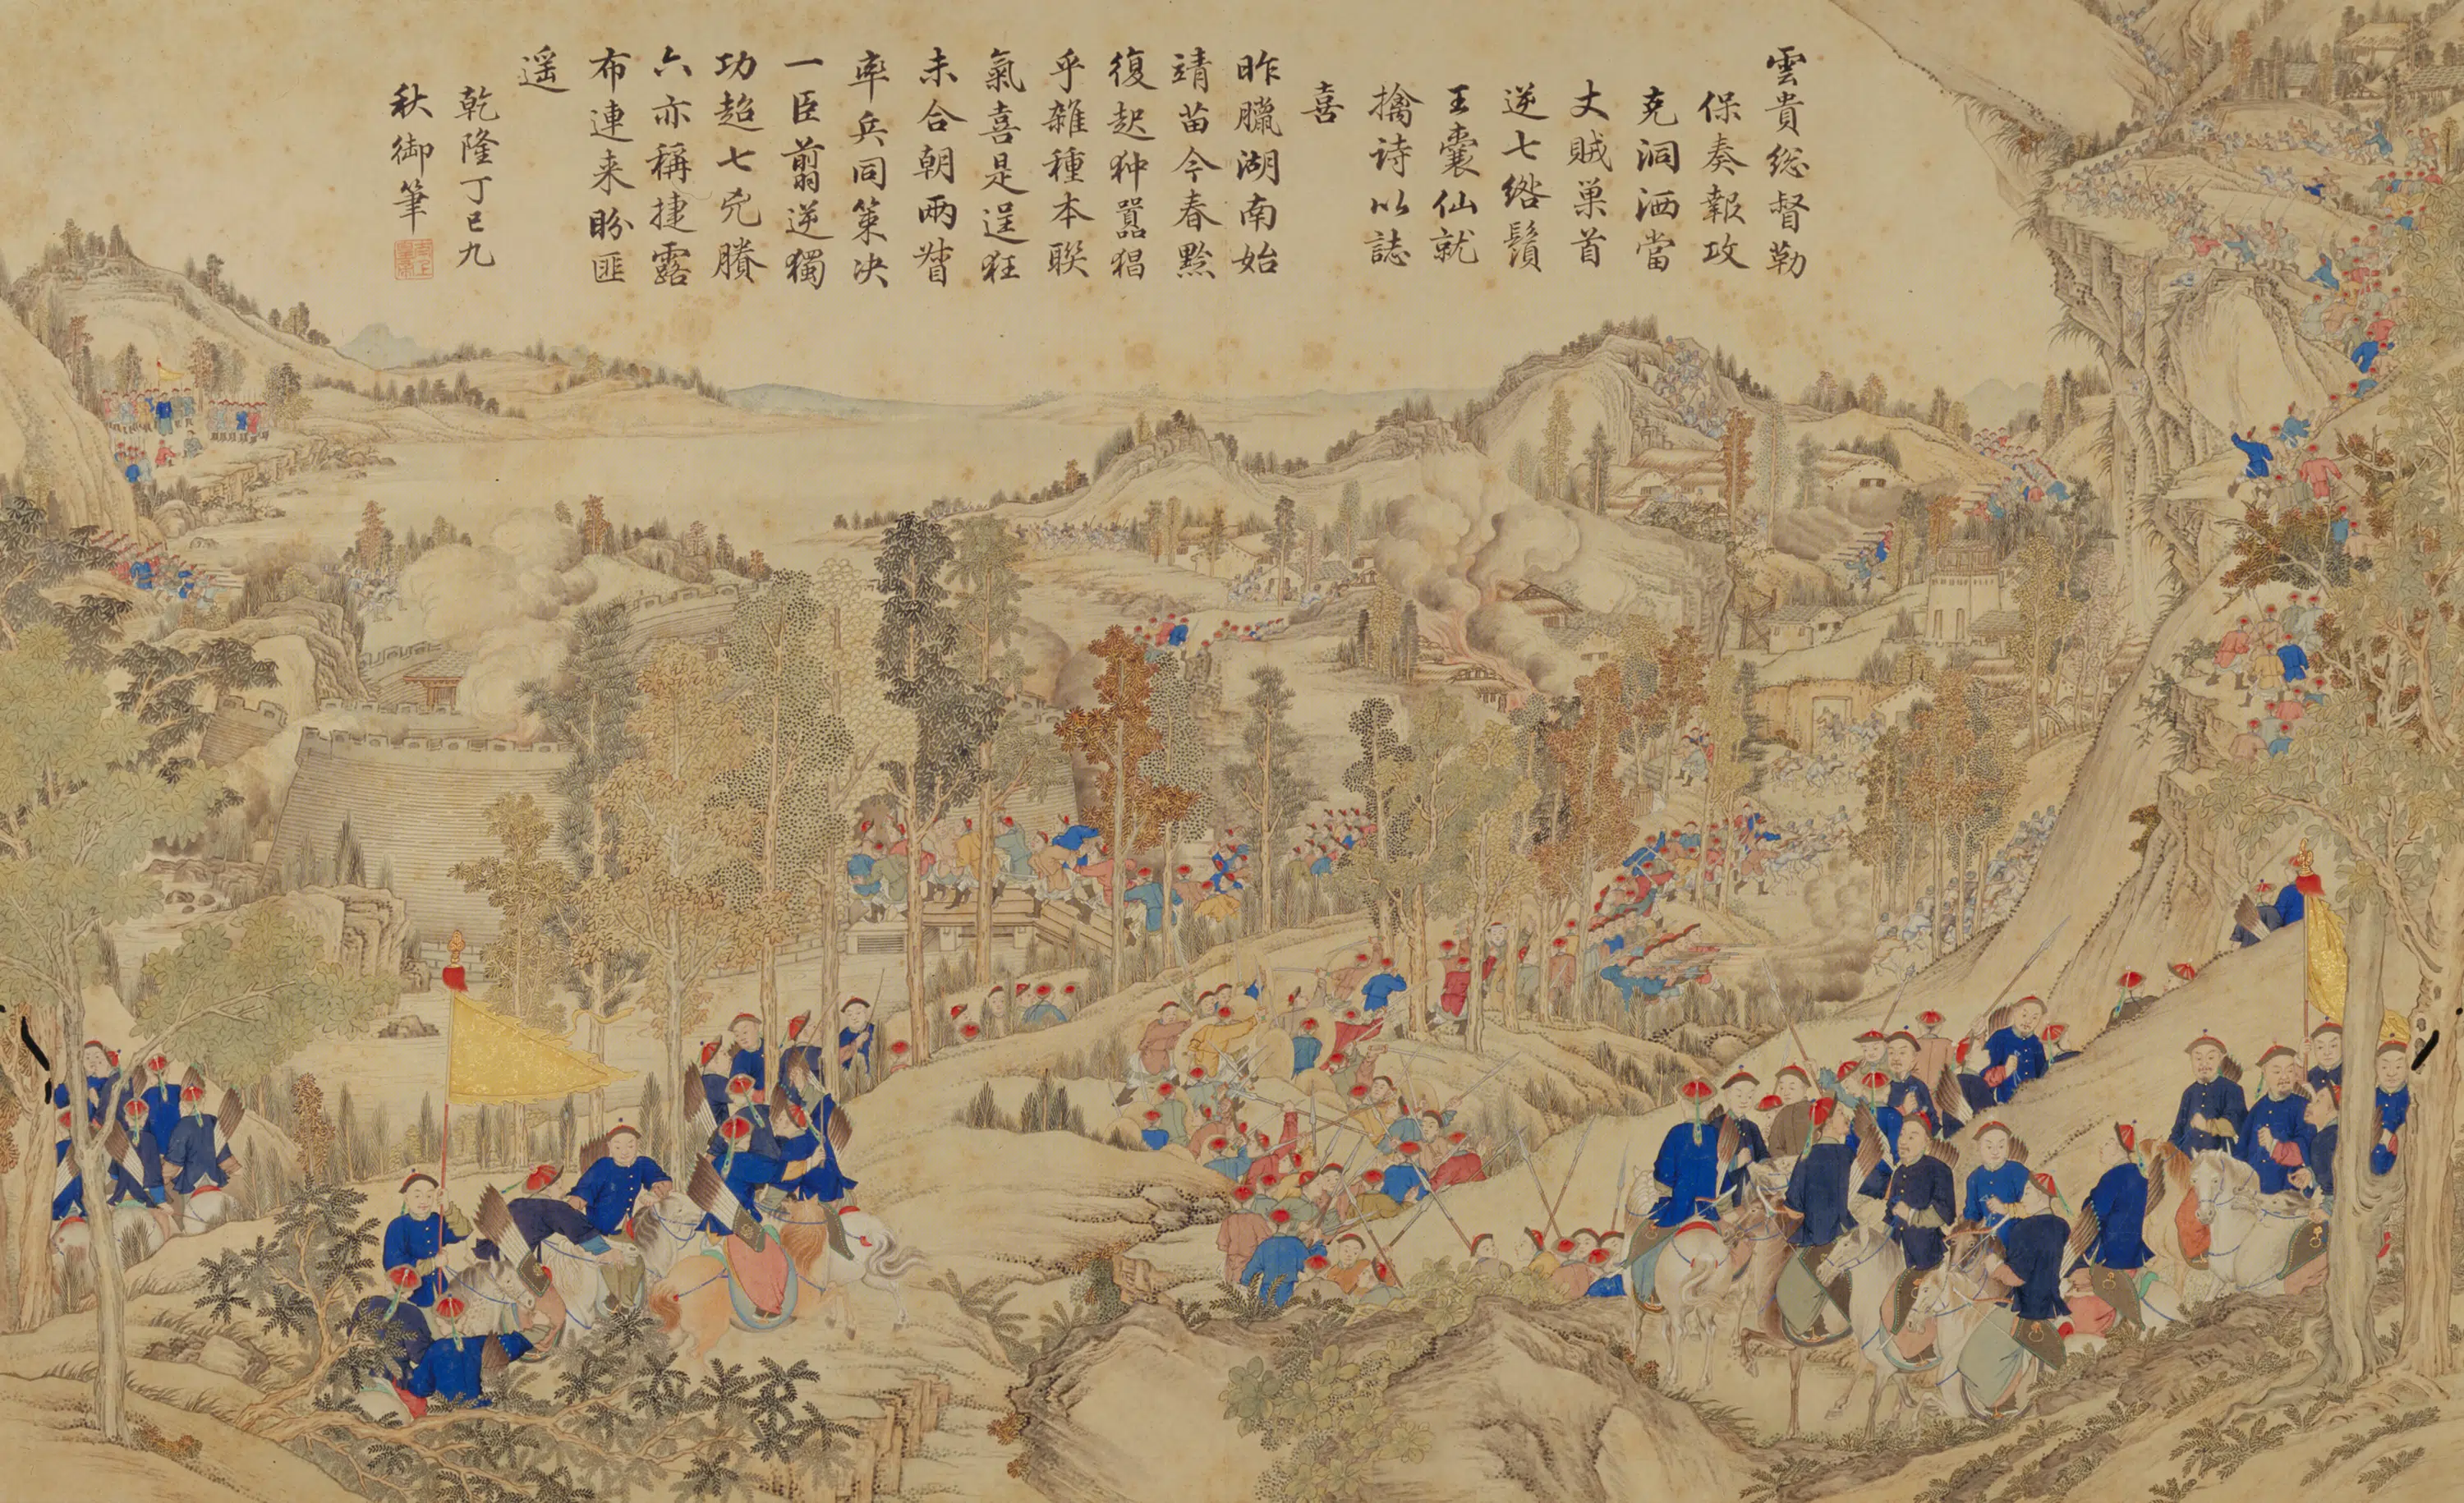 雲貴総督勒
保奏報攻
克洞洒當
丈賊巢首
逆七綹鬚
王囊仙就
擒诗以誌
喜
昨臘湖南始
靖苗今春黔
復起狆嚣猖
乎雑種本聨
氣喜是逞狂
未合朝兩聟
率兵同䇿决
一臣翦逆獨
功超七兇賸
六亦稱捷露
布連来盼匪
遥
乾隆丁巳九
秋御筆